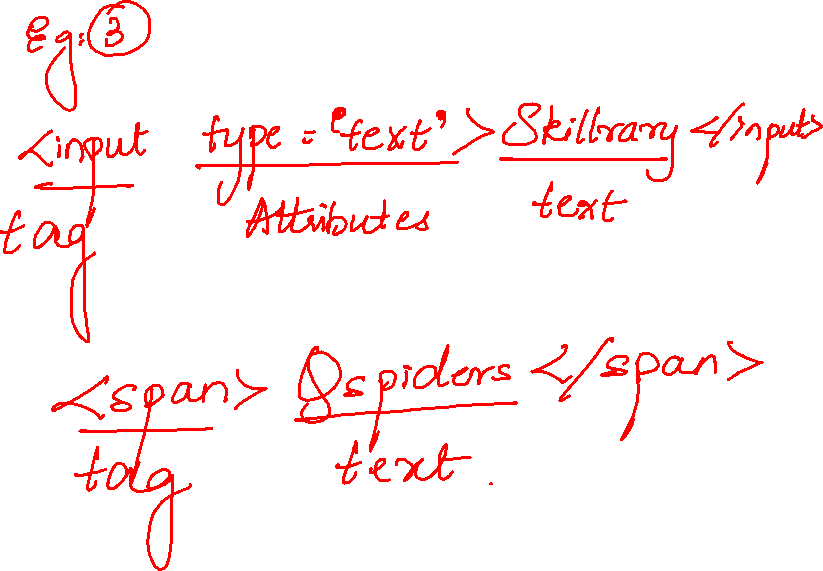 Eg: 3
<input type = 'text' > Skillrary </input>
tag Attributes text
<span> Qspiders </span>
tag text.